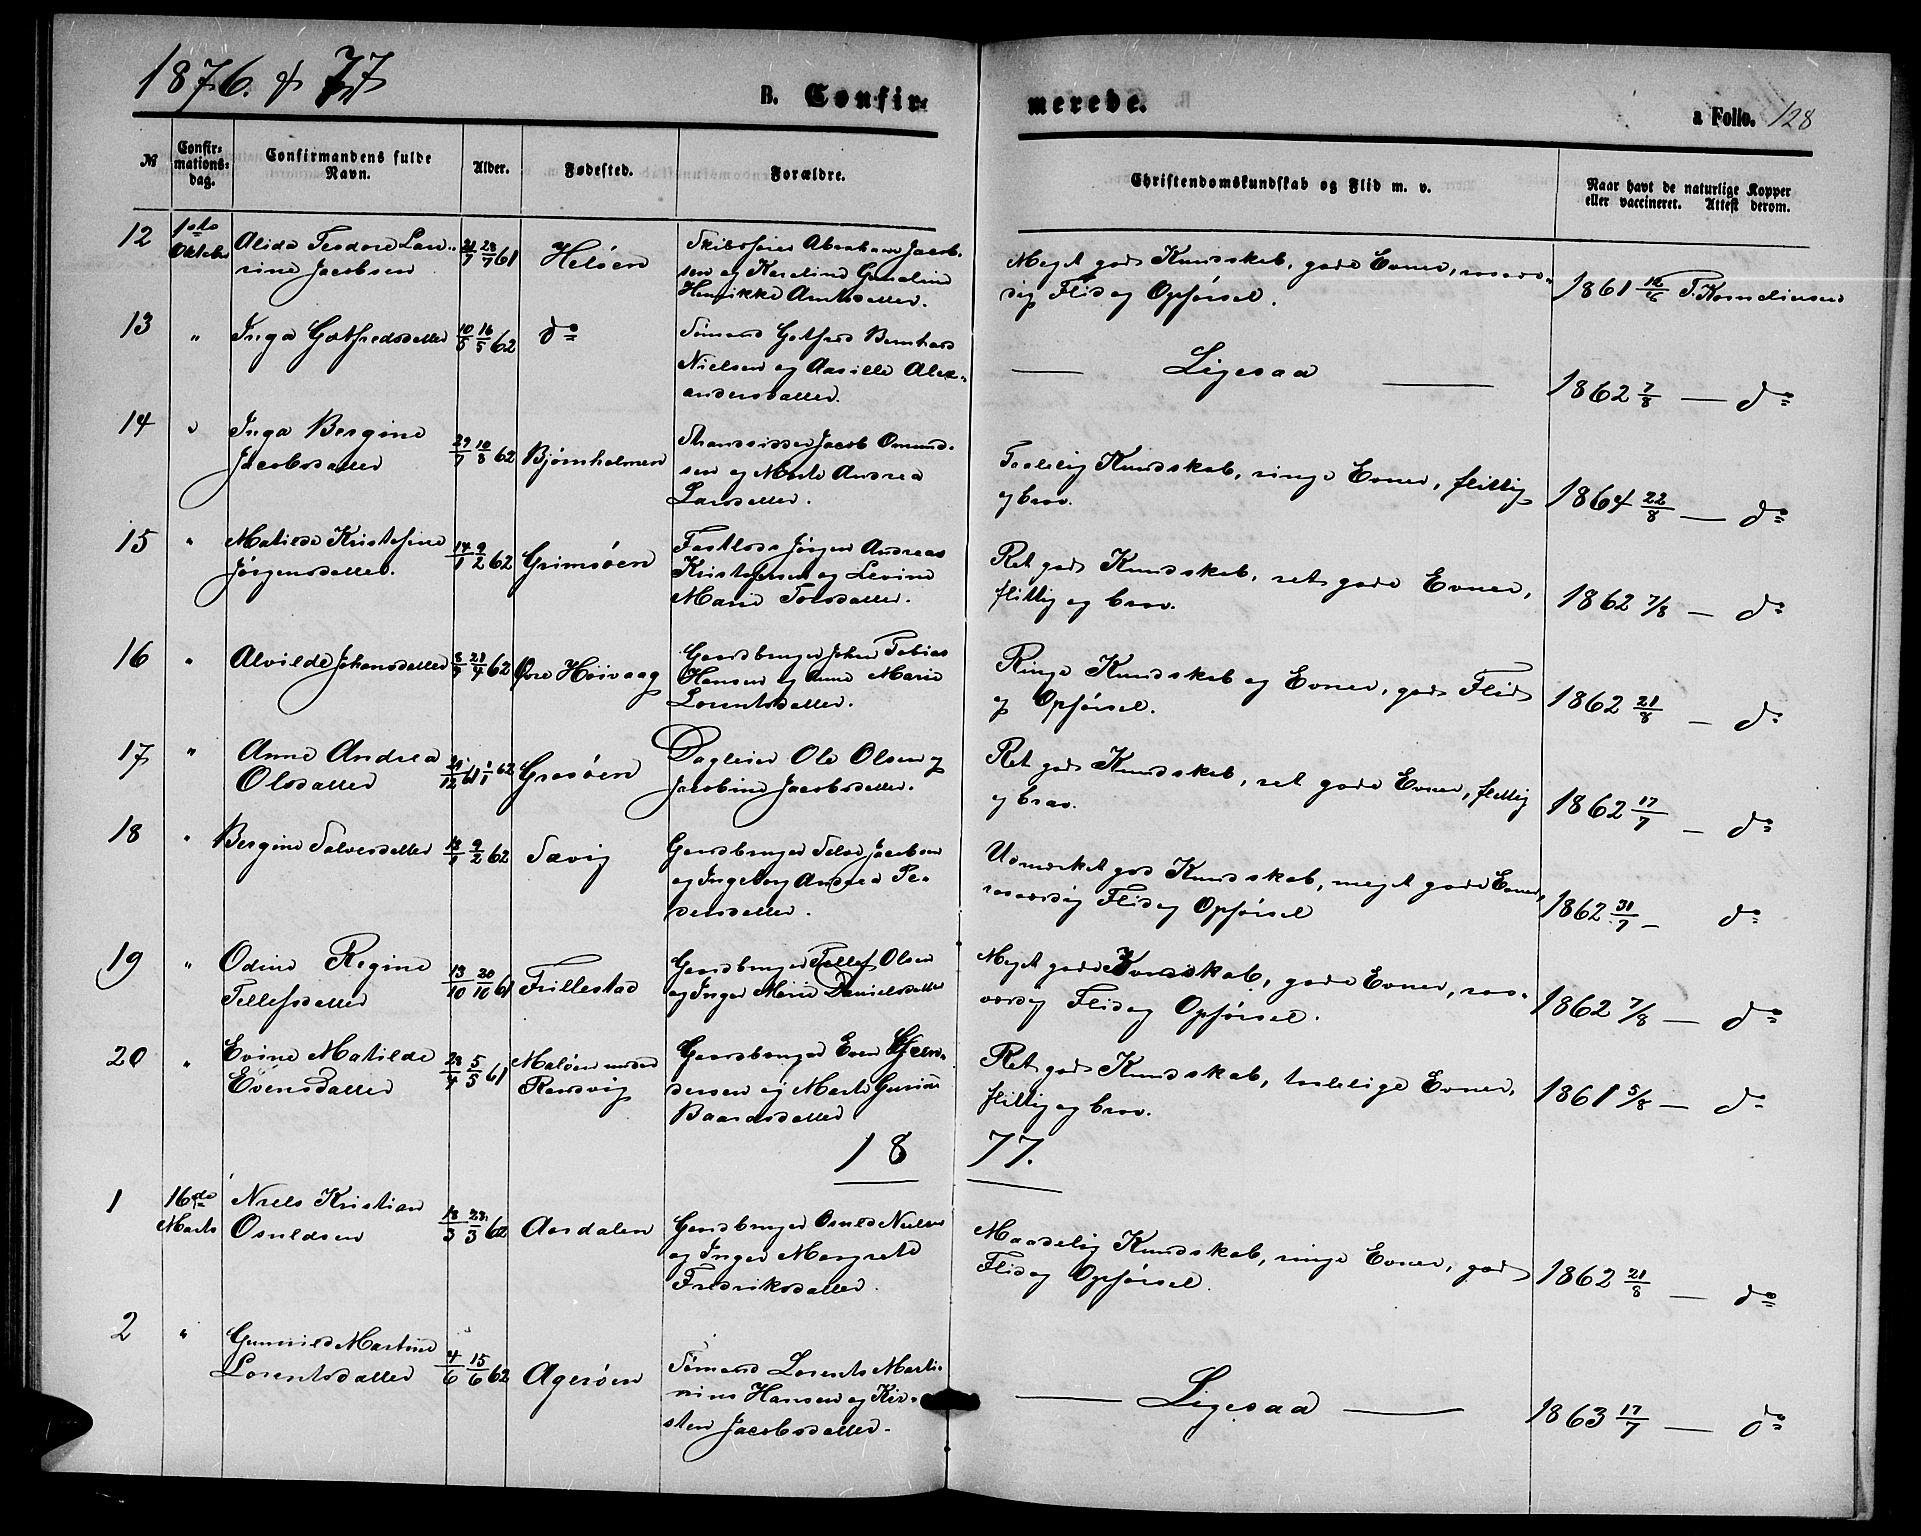 1876 & 77
B. Confir-
merede.
a Folio. 128
№
Confir-
mations-
dag.
Confirmandens fulde
Navn.
Alder.
Fødested.
Forældre.
Christendomskundskab og Flid m. v.
Naar havt de naturlige Kopper
eller vaccineret. Attest derom.
12 1ste Oktober
Alida Teodore Lau-
rine Jacobsen
61
Heløen
Skibsfører Abraham Jacob-
sen og Karoline Gunoline
Henrikke Arntsdatter.
Meget gode Kundskab, gode Evner, rosvær-
dig Flid og Opførsel.
1861 P. Korneliusen
13 "
Inga Gotfredsdatter
10/5 16/5 62
do
Sømand Gotfred Bernhard
Nielsen og Aasille Alex-
andersdatter.
Ligesaa
1862 7/8 — do
14 "
Inga Bergine
Jacobsdatter
29/7 10/8 62
Bjørnholmen
Strandsidder Jacob Omund-
sen og Marte Andrea
Larsdatter.
Taalelig Kundskab, ringe Evner, flittig
og brav.
1864 22/8 — do
15 "
Matilde Kristofine
Jørgensdatter.
14/1 9/2 62
Grimsøen
Fastlods Jørgen Andreas
Kristofersen og Levine
Marie Torsdatter.
Ret god Kundskab, ret gode Evner,
flittig og brav.
1862 7/8 — do
16 "
Alvilde Johansdatter
21/4 62
Øvre Høivaag
Gaardbruger Johan Tobias
Hansen og Anne Marie
Lorentsdatter.
Ringe Kundskab og Evner, god Flid
og Opførsel.
1862 21/8 — do
17 "
Anne Andrea
Olsdatter
61 1/1 62
Grosøen
Dagleier Ole Olsen og
Jacobine Jacobsdatter.
Ret god Kundskab, ret gode Evner, flittig
og brav.
1862 17/7 — do
18 "
Bergine Salvesdatter
9/2 62
Sævig
Gaardbruger Salve Jacobsen
og Ingeborg Andrea Pe-
dersdatter.
Udmærket god Kundskab, meget gode Evner,
rosværdig Flid og Opførsel
1862 31/7 — do
19 "
Odine Regine
Tellefsdatter
13/10 20/10 61
Frillestad
Gaardbruger Tellef Olsen
og Inger Marie Danielsdatter
Meget gode Kundskab, gode Evner, ros-
værdig Flid og Opførsel.
1862 7/8 — do
20 "
Evine Matilde
Evensdatter
28/4 5/5 61
Maløen
Gaardbruger Even Gjeru-
dersen og Marte Gurine
Baardsdatter
Ret god Kundskab, taalelige Evner,
flittig og brav.
1861 5/8 — do
1877.
1 16de Marts
Niels Kristian
Osuldsen
18/3 23/3 62
Aasdalen
Gaardbruger Osuld Nielsen
og Inger Margrete
Fredriksdatter.
Maadelig Kundskab, ringe Evner, god
Flid og Opførsel.
1862 21/8 — do
2 "
Gunnild Martine
Lorentsdatter
4/6 15/6 62
Agerøen
Sømand Lorents Marti-
nius Hansen og Kir-
sten Jacobsdatter.
Ligesaa
1863 17/7 — do